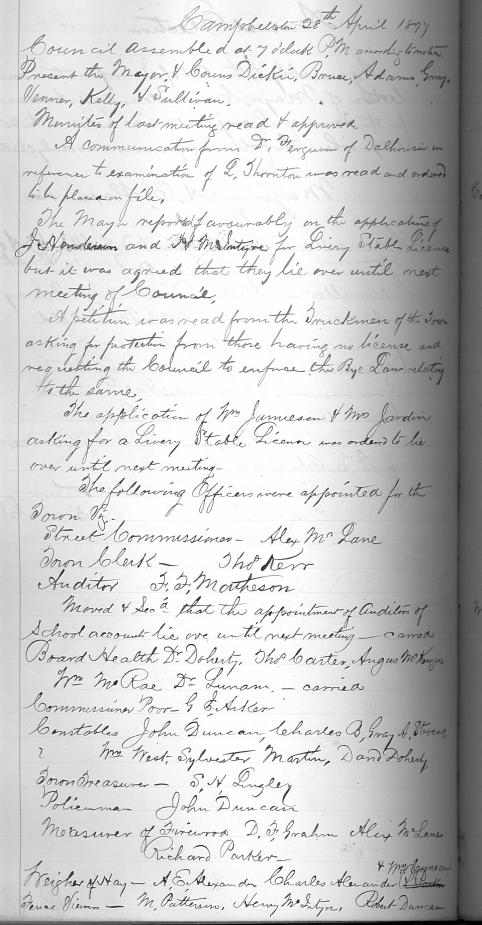 Campbellton 28th April 1897
Council assembled at 7 oclock P.M according to motion
Present the Mayor, & Couns Dickie, Bruce, Adams, Gray,
Venner, Kelly, & Sullivan.
Minutes of last meeting read & approved
A communication from D. Ferguson of Dalhousie in
reference to examination of L. Thornton was read and ordered
to be placed on file.
The Mayor reported favourably on the application of
J Henderson and McIntyre for Livery Stable License
but it was agreed that they lie over until next
meeting of Council.
A petition was read from the Truckmen of the Town
asking for protection from those having no license and
requesting the Council to enforce the Bye Law relating
to the same.
The application of Wm Jamieson & Mrs Jardin
asking for a Livery Stable License was ordered to lie
over until next meeting—
The following Officers were appointed for the
Town Viz
Street Commissioner — Alex Mc Lane
Town Clerk — Thos Kerr
Auditor F. F. Matheson
Moved & Secd that the appointment of Auditors of
School account lie over until next meeting — carried
Board Health Dr Doherty, Thos Carter, Angus McKenzie
Wm McRae Dr Lunam. — carried
Commissioner Poor — G E Asker
Constables John Duncan, Charles B, Gray A, Stevens
Wm West, Sylvester Martin, David Doherty
Town Treasurer — S, H, Lingley
Policeman John Duncan
Measurer of Firewood D. F. Graham Alex McLane
Richard Parker —
& Wm
Weigher of Hay — A, E, Alexander Charles Alexander
Fence Viewers — M, Patterson, Henry McIntyre, Robert Duncan